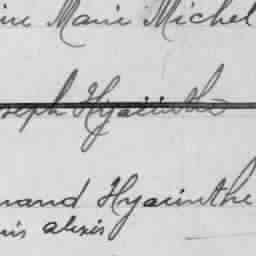 Marie Michel
seph Hyacinthe
mand Hyacinthe
uis alexis